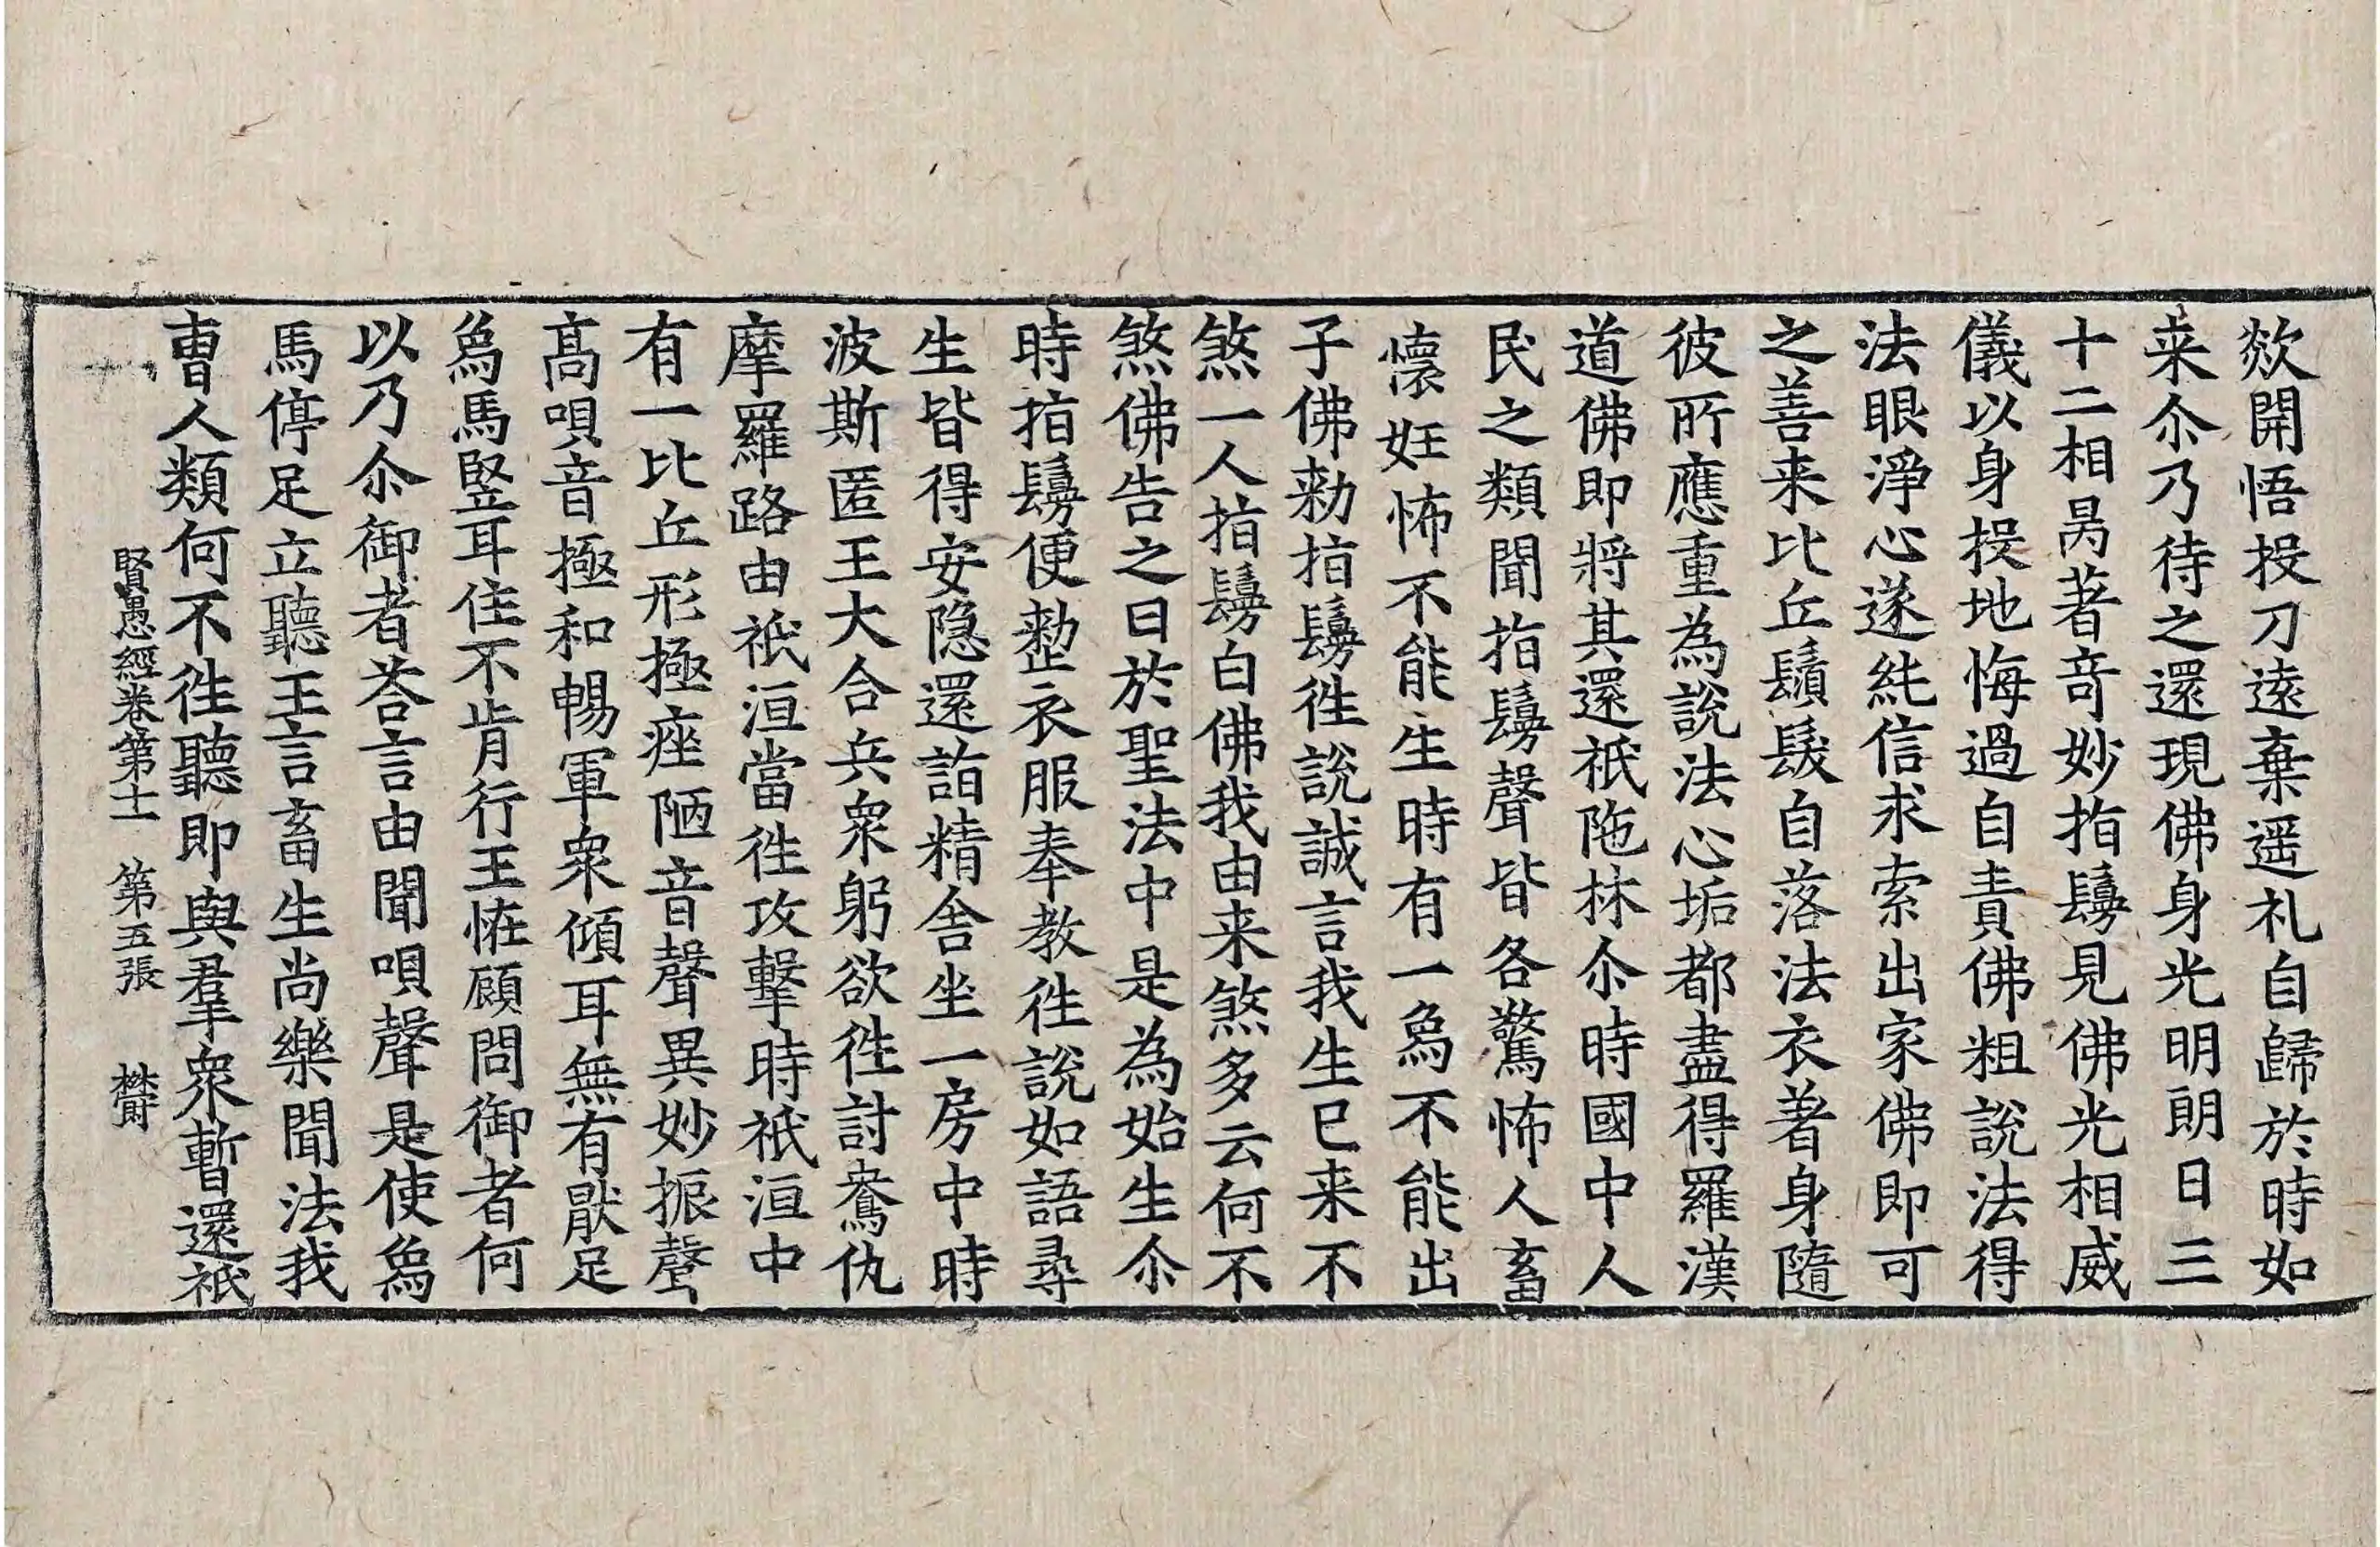 欻開悟投刀遠棄遥礼自歸於時如
来尒乃待之還現佛身光明朗日三
十二相昺著竒妙指鬘見佛光相威
儀以身投地悔過自責佛粗說法得
法眼淨心遂純信求索出家佛即可
之善来比丘鬚髮自落法衣著身隨
彼所應重為說法心垢都盡得羅漢
道佛即將其還祇陁林尒時國中人
民之類聞指鬘聲皆各驚怖人畜
懷妊怖不能生時有一爲不能出
子佛勑指鬘徃說誠言我生已来不
煞一人指鬘白佛我由来煞多云何不
煞佛告之曰於聖法中是為始生尒
時指鬘便整衣服奉教徃說如語尋
生皆得安隐還詣精舍坐一房中時
波斯匿王大合兵衆躬欲徃討鴦仇
摩羅路由祇洹當徃攻擊時祇洹中
有一比丘形極痤陋音聲異妙振聲
髙唄音極和暢軍衆傾耳無有猒足
爲馬竪耳住不肯行王恠顧問御者何
以乃尒御者荅言由聞唄聲是使爲
馬停足立聽王言畜生尚樂聞法我
曺人類何不徃聽即與羣衆暫還祇
賢愚經卷第十一　第五張　欝